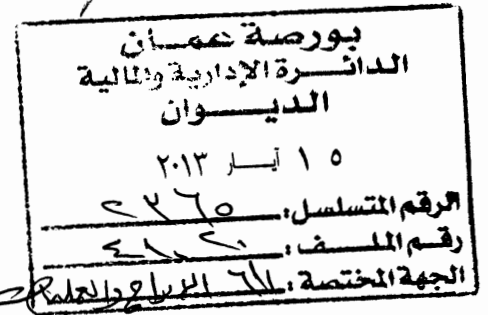 بورصة عمان
الدائرة الإدارية والمالية
الديوان
١٥ أيار ٢٠١٣
الرقم المتسلسل: ٢٣٦٥
رقم الملف:
الجهة المختصة: الإدراج والعمليات